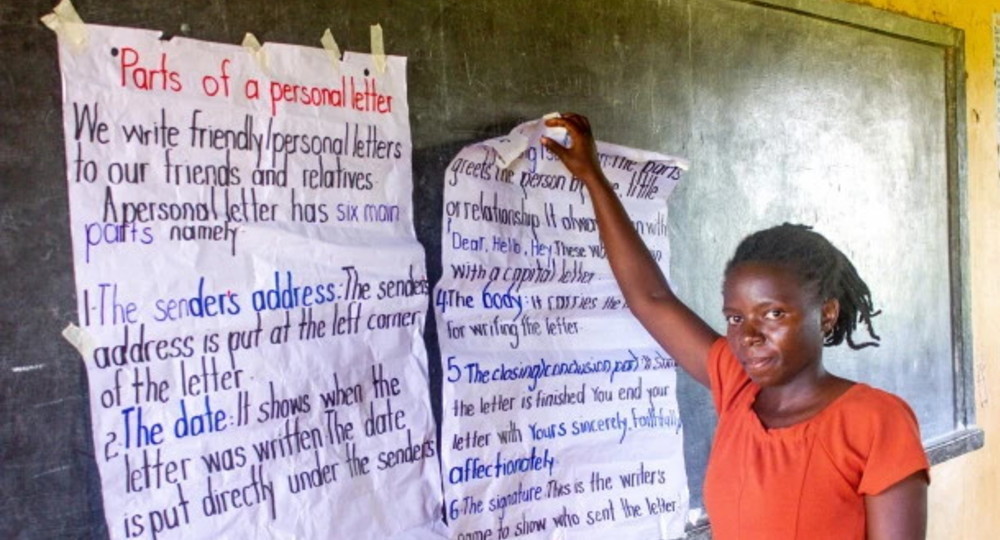 Parts of a personal letter
We write friendly/personal letters
to our friends and relatives.
A personal letter has six main
parts namely
1. The sender's address: The senders
address is put at the left corner
of the letter.
2. The date: It shows when the
letter was written The date
is put directly under the senders
the parts
greets the person by title
or relationship. It with
Dear, Hello, Hey. These
with a capital letter
4 The body: It carries the
for writing the letter.
5 The closing/conclusion part
the letter is finished You end your
letter with Yours sincerely, Faithfully
affectionately
6 The signature This is the writer's
name to show who sent the letter.